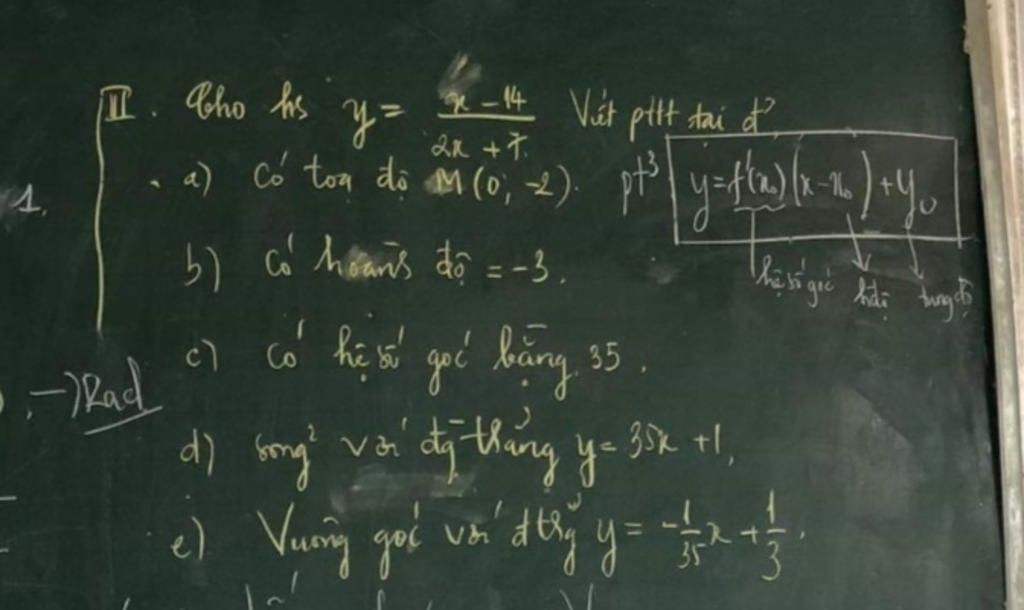 II. Cho hs y = \frac{x - 14}{2x + 7} Viết pttt tại đ²
a) Có toạ độ M(0; -2).
pt³ y = f'(x₀)(x - x₀) + y₀
hệ số góc hđộ tung độ
b) Có hoành độ = -3.
1.
c) Có hệ số góc bằng 35.
→ Rad
d) song² với đg thẳng y = 35x + 1,
e) Vuông góc với đthg y = -\frac{1}{35}x + \frac{1}{3}.